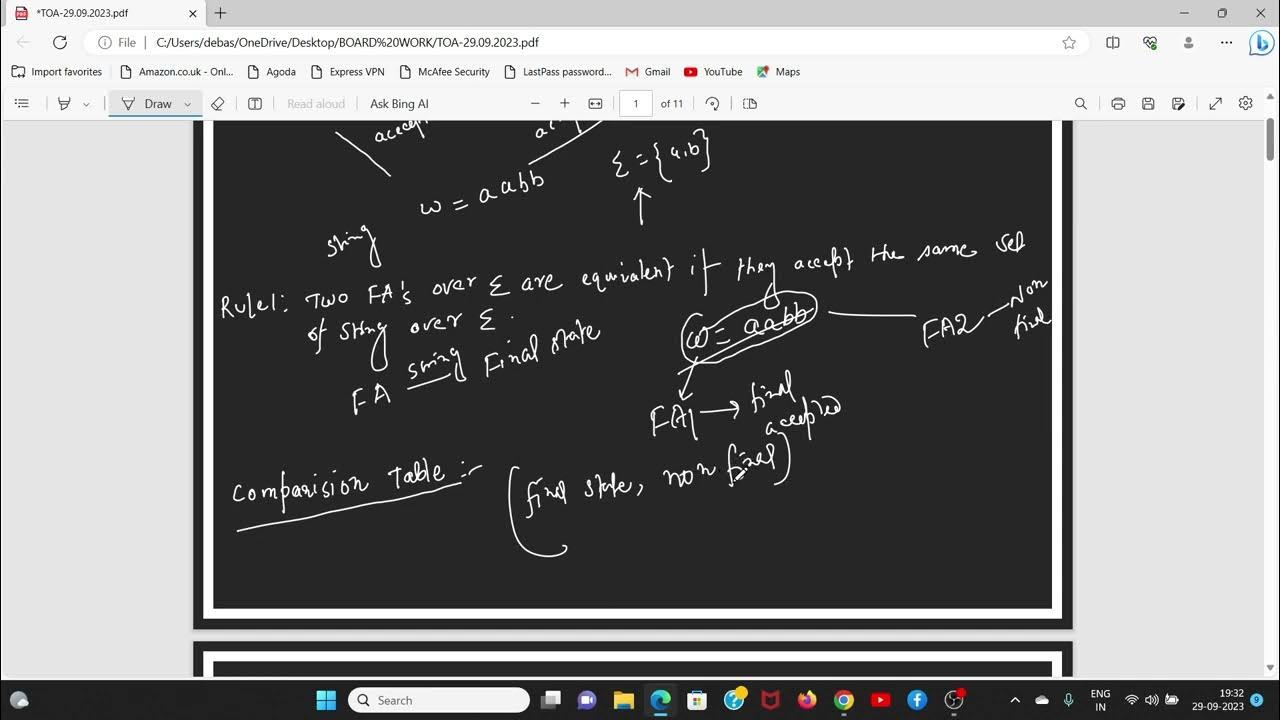 *TOA-29.09.2023.pdf
File C:/Users/debas/OneDrive/Desktop/BOARD%20WORK/TOA-29.09.2023.pdf
Import favorites Amazon.co.uk - Onl... Agoda Express VPN McAfee Security LastPass password... Gmail YouTube Maps
Draw Read aloud Ask Bing AI 1 of 11
accept
Σ = {a,b}
w = aabb
string
Rule1: Two FA's over Σ are equivalent if they accept the same set
of string over Σ.
w = aabb FA2 Non
final
FA string Final state
FA1 → final
accepted
Comparision Table :- (final state, non final)
Search
ENG
IN
19:32
29-09-2023